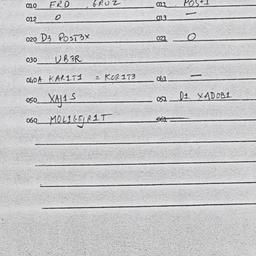 010 FRD , GRUZ 011 POS+1
012 0 013 —
020 D3 POST3X 021 0
030 UB3R
040A KAR1T1 = KOR1T3 041 —
050 XAJ1S 051 D1 XADOB1
060 061